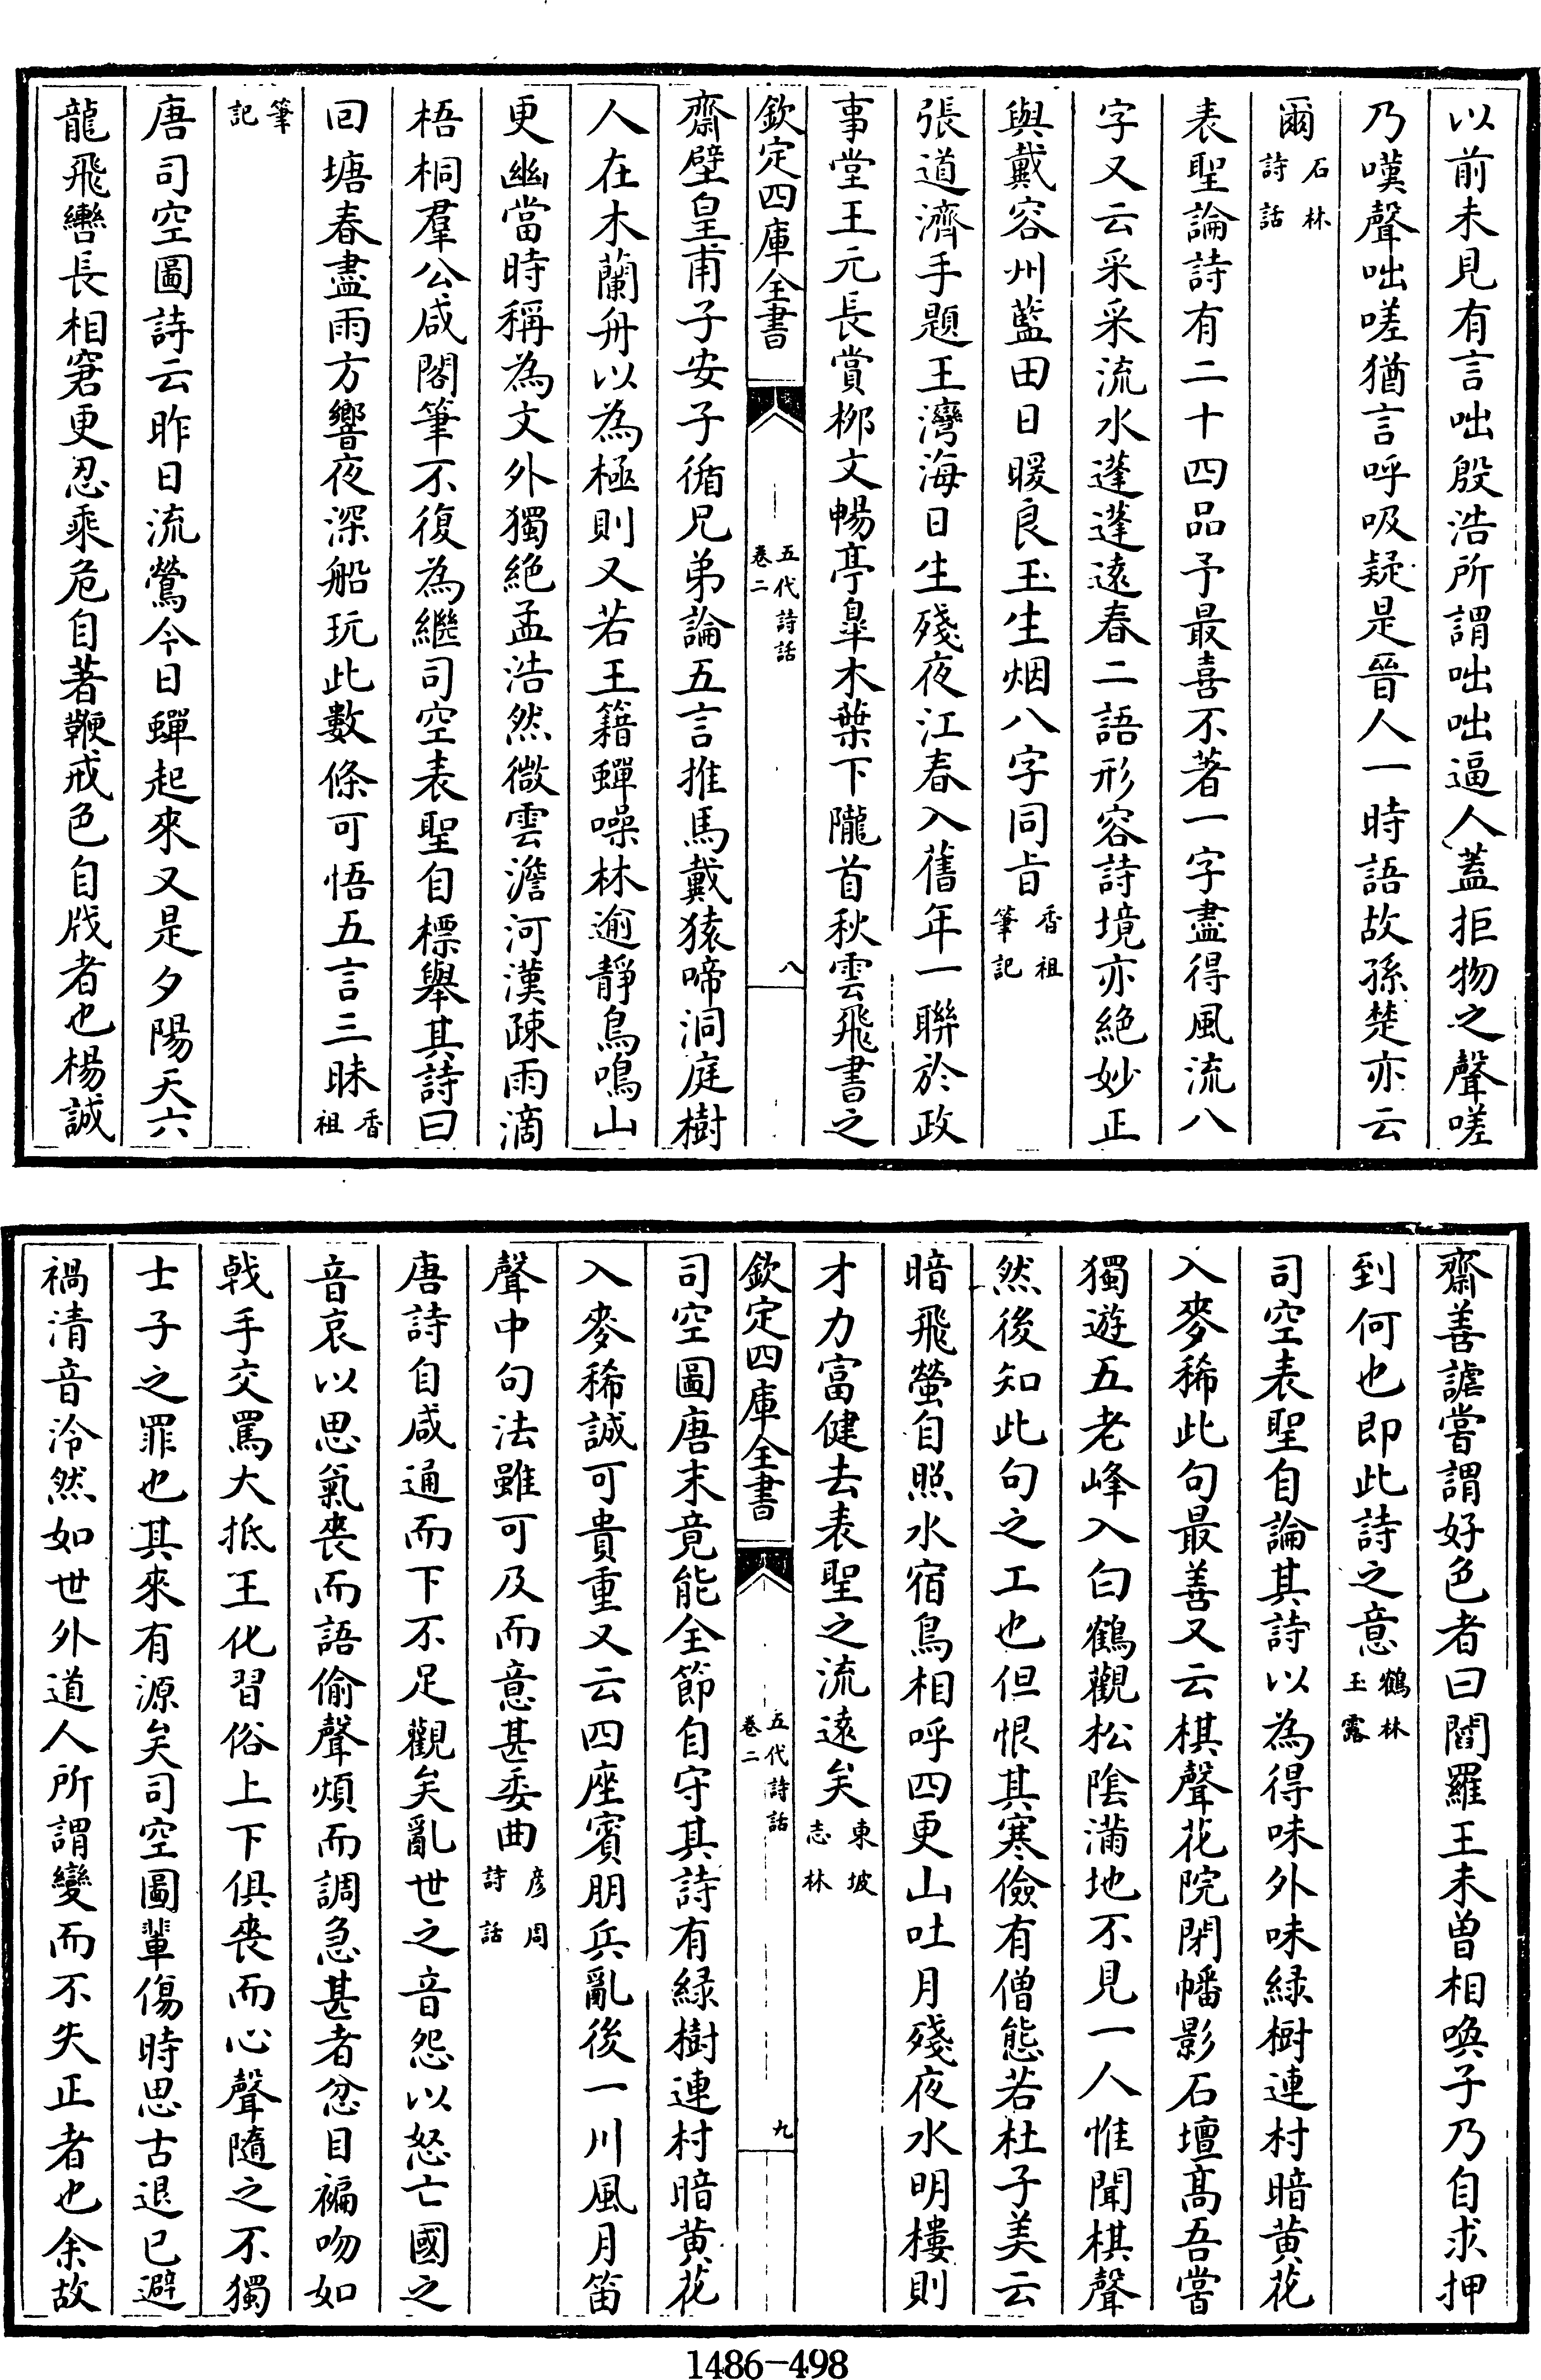 以前未見有言咄殷浩所謂咄咄逼人蓋拒物之聲嗟
乃嘆聲咄嗟猶言呼吸疑是晉人一時語故孫楚亦云
爾石林詩話
表聖論詩有二十四品予最喜不著一字盡得風流八
字又云采采流水蓬蓬遠春二語形容詩境亦絕妙正
與戴容州藍田日暖良玉生烟八字同旨香祖筆記
張道濟手題王灣海日生殘夜江春入舊年一聯於政
事堂王元長賞栁文暢亭臯木葉下隴首秋雲飛書之
欽定四庫全書
五代詩話
卷二
八
齋壁皇甫子安子循兄弟論五言推馬戴猿啼洞庭樹
人在木蘭舟以為極則又若王籍蟬噪林逾靜鳥鳴山
更幽當時稱為文外獨絶孟浩然微雲澹河漢疎雨滴
梧桐羣公咸閣筆不復為繼司空表聖自標舉其詩曰
回塘春盡雨方響夜深船玩此數條可悟五言三昧香祖
筆記
唐司空圖詩云昨日流鶯今日蟬起來又是夕陽天六
龍飛轡長相窘更忍乘危自著鞭戒色自戕者也楊誠
齋善謔嘗謂好色者曰閻羅王未曽相喚子乃自求押
到何也即此詩之意鶴林玉露
司空表聖自論其詩以為得味外味緑樹連村暗黄花
入麥稀此句最善又云棋聲花院閉幡影石壇髙吾嘗
獨遊五老峰入白鶴觀松隂滿地不見一人惟聞棋聲
然後知此句之工也但恨其寒儉有僧態若杜子美云
暗飛螢自照水宿鳥相呼四更山吐月殘夜水明樓則
才力富健去表聖之流遠矣東坡志林
欽定四庫全書
五代詩話
卷二
九
司空圖唐末竟能全節自守其詩有緑樹連村暗黄花
入麥稀誠可貴重又云四座賓朋兵亂後一川風月笛
聲中句法雖可及而意甚委曲彦周詩話
唐詩自咸通而下不足觀矣亂世之音怨以怒亡國之
音哀以思氣喪而語偷聲煩而調急甚者忿目褊吻如
㦸手交罵大抵王化習俗上下俱喪而心聲隨之不獨
士子之罪也其來有源矣司空圖輩傷時思古退已避
禍清音泠然如世外道人所謂變而不失正者也余故
1486-498